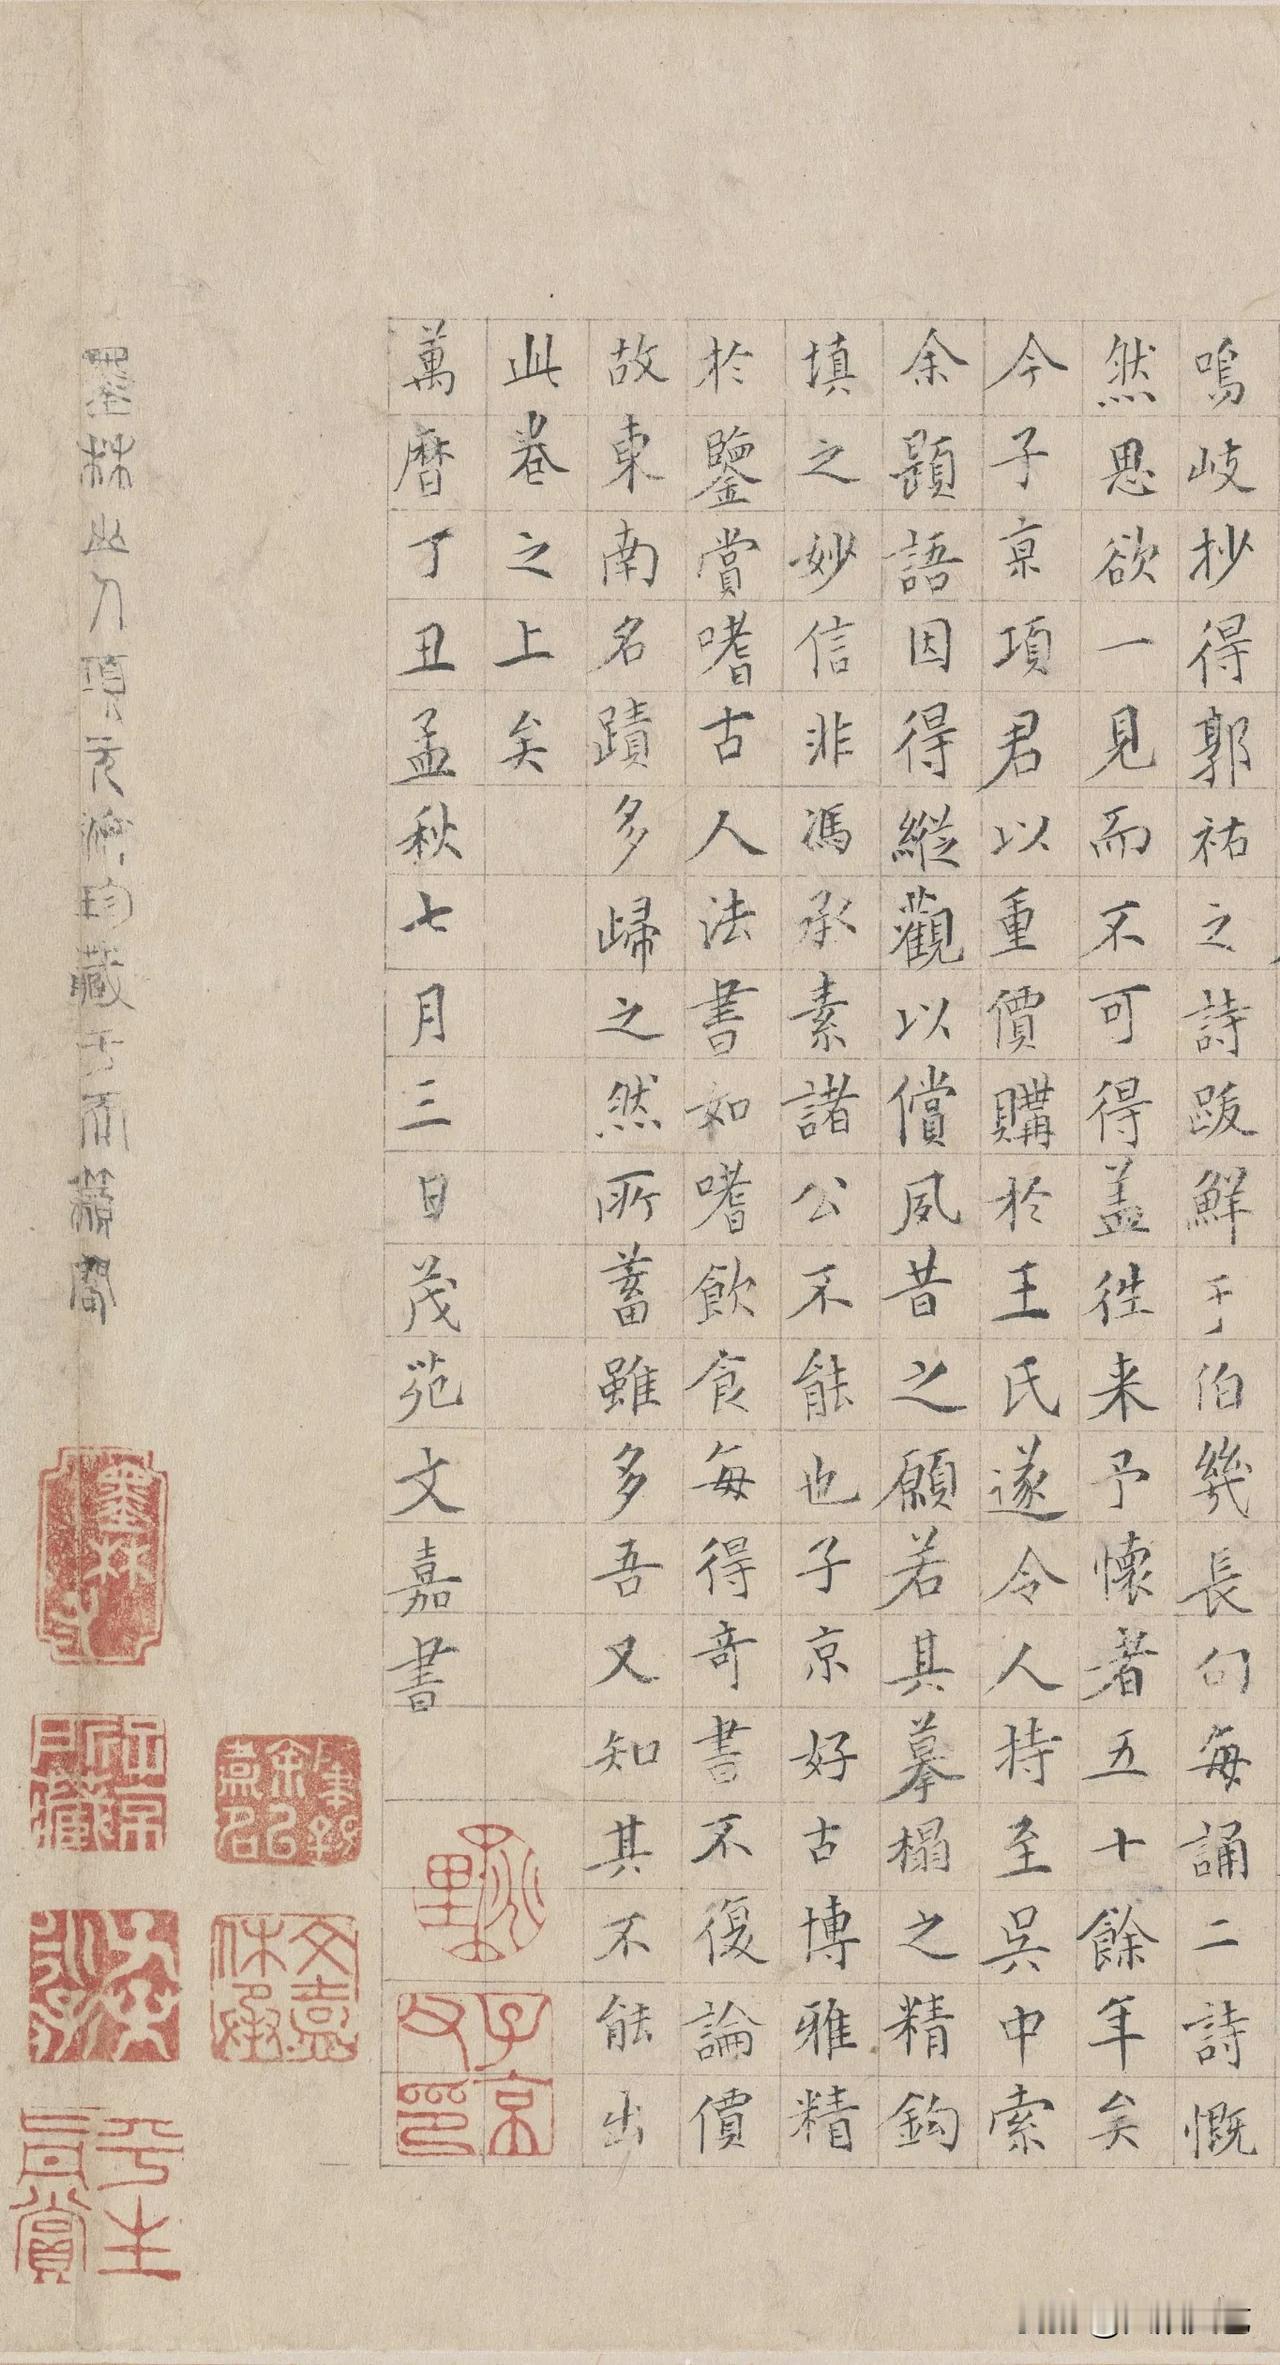 鳴岐抄得郭祐之詩跋鮮于伯幾長句每誦二詩慨
然思欲一見而不可得盖徃来予懷者五十餘年矣
今子亰項君以重價購於王氏遂令人持至吳中索
余題語因得縱觀以償夙昔之願若其摹榻之精鈎
填之妙信非馮承素諸公不能也子京好古博雅精
於鑒賞嗜古人法書如嗜飲食每得奇書不復論價
故東南名蹟多歸之然所蓄雖多吾又知其不能出
此卷之上矣
萬曆丁丑孟秋七月三日茂苑文嘉書
墨林山人項元汴珍藏于天籟閣
子京父印
文嘉休承
平生真賞